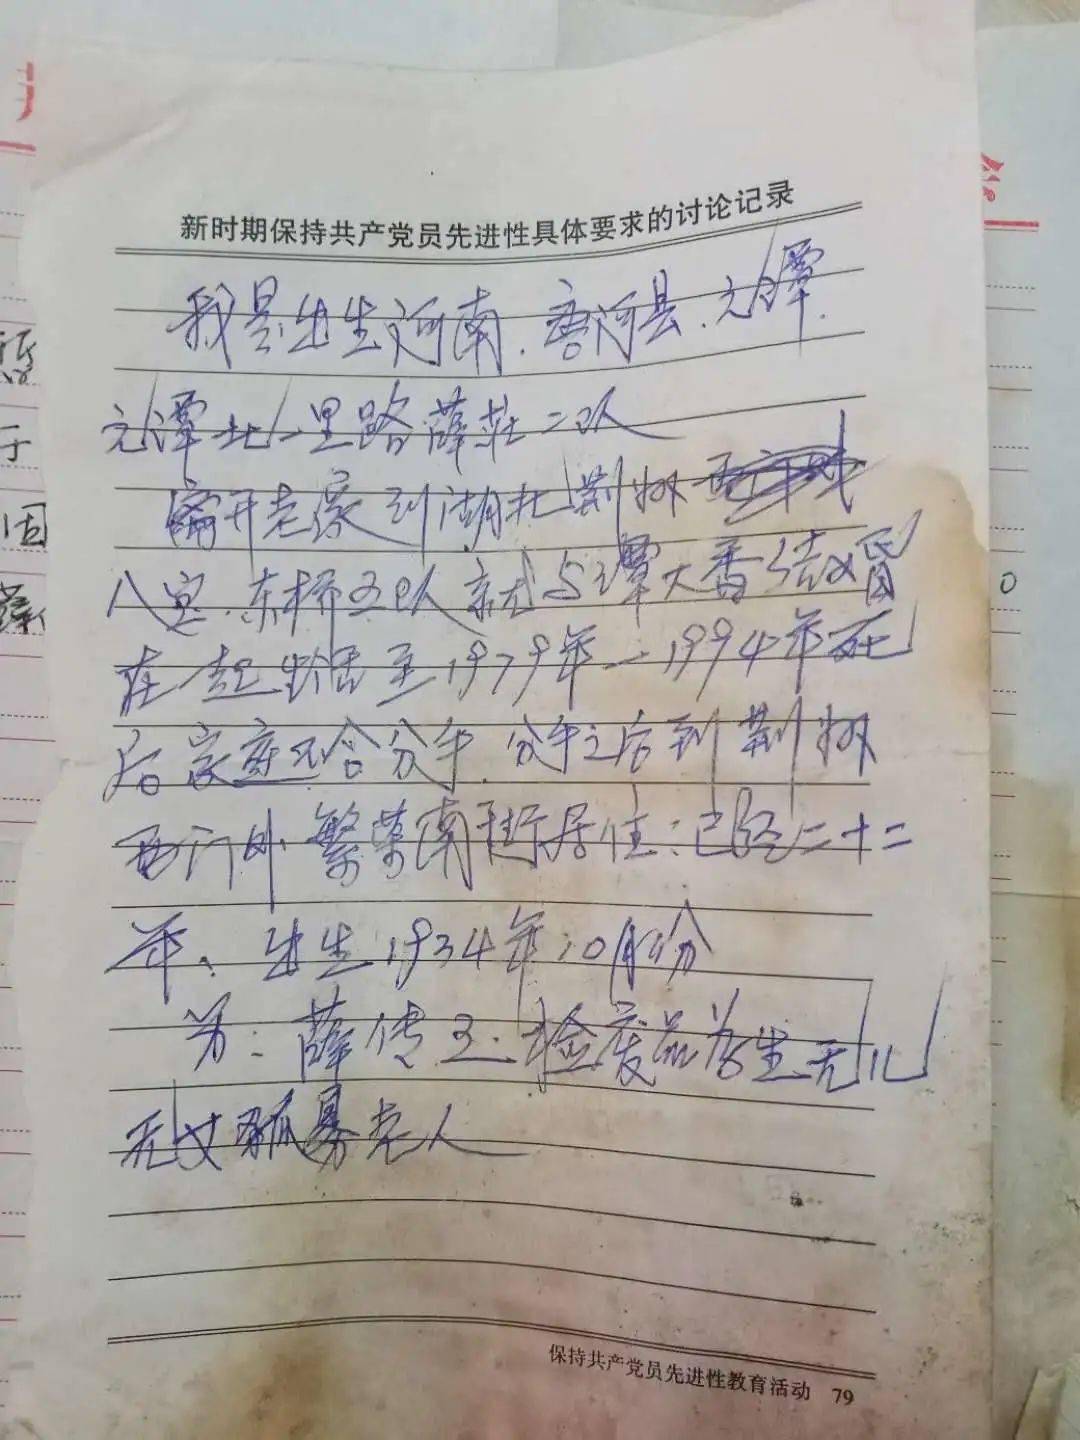 新时期保持共产党员先进性具体要求的讨论记录
我是出生河南.唐河县.元潭.
元潭北一里路薛庄二队
离开老家到湖北荆州
八宝.东桥五队就与谭大香结婚
在一起生活至1979年—1994年死
后家庭不合分手.分手之后到荆州
西门外繁荣南街居住:已经二十二
年、出生1934年10月份
为:薛传玉.捡废品为生无儿
无女孤寡老人
保持共产党员先进性教育活动 79